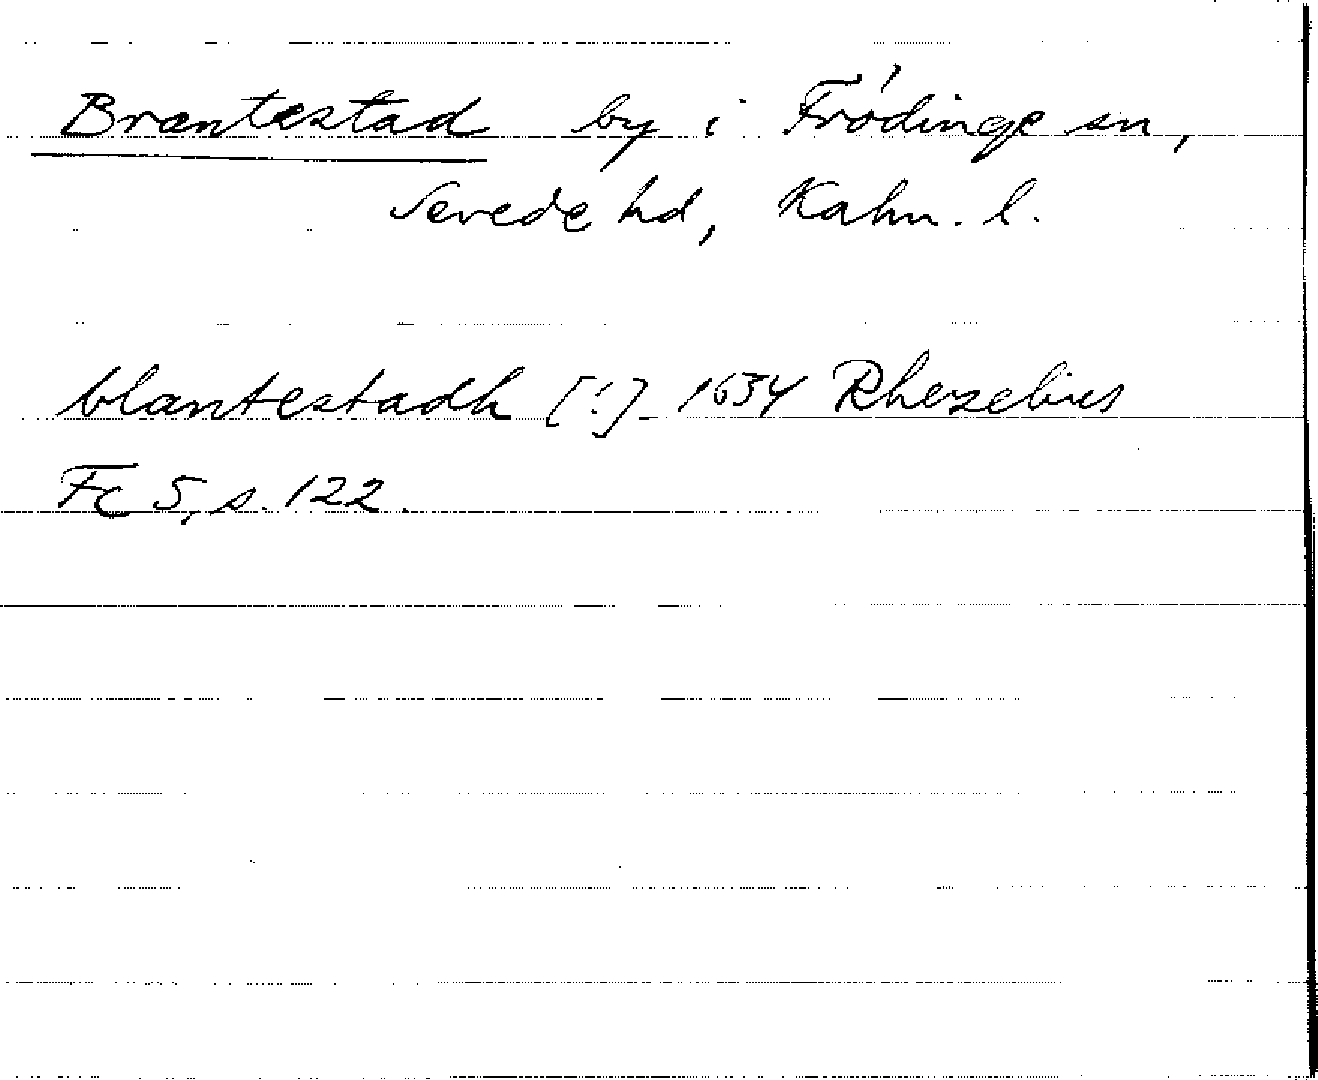 Brantestad by i Frödinge sn,
Sevede hd, Kalm. l.
blantestadh [!] 1634 Rhezelius
Fc 5, s. 122.